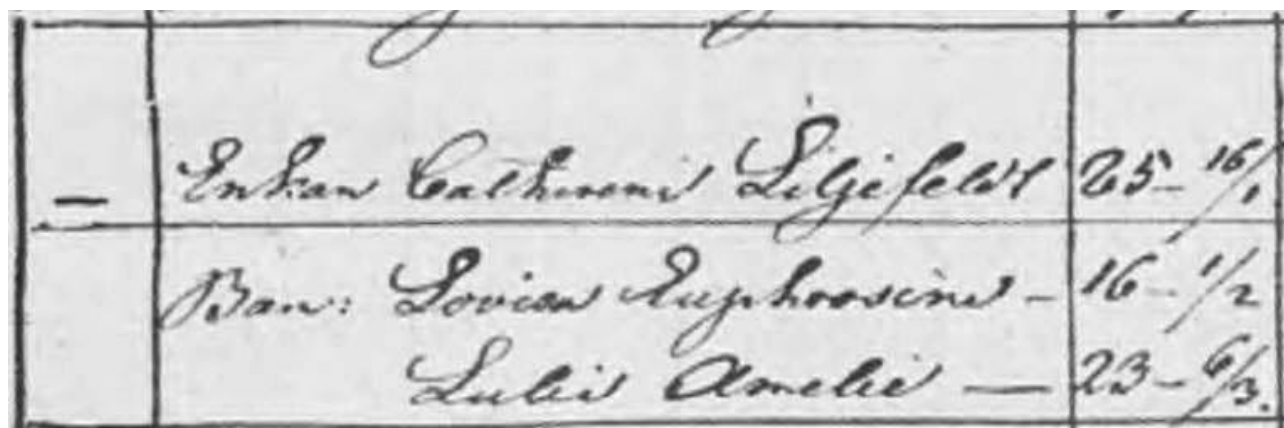 — Enkan Catharina Liljefeldt 25 - 16/1
Barn: Lovisa Euphrosine - 16 - 1/2
Amelie — 23 - 6/3.